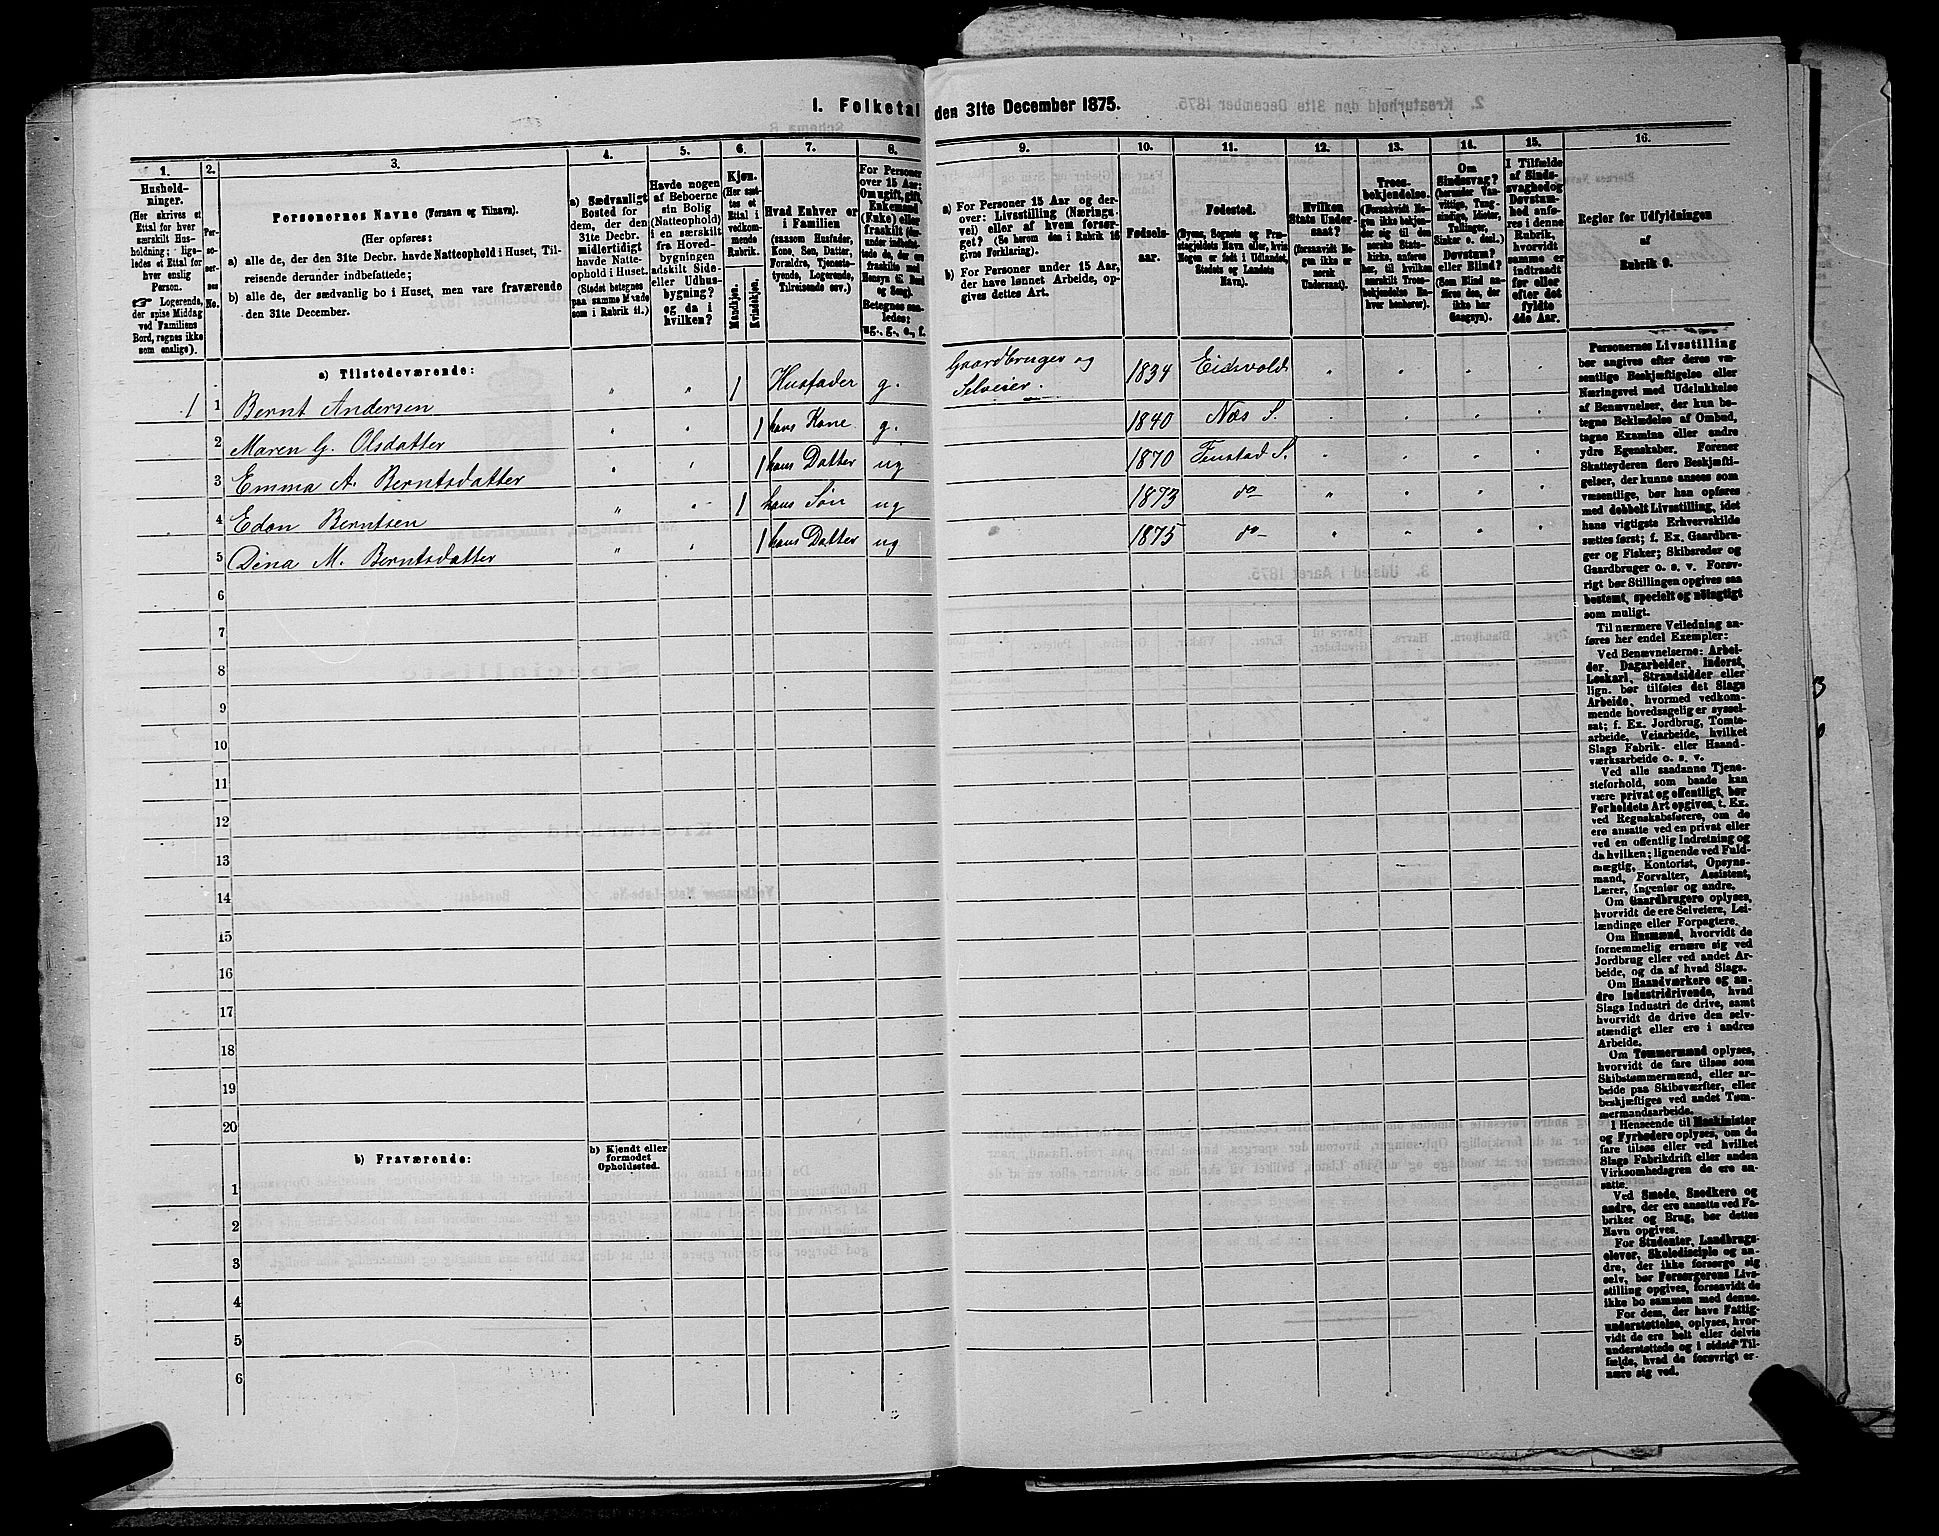 1. Folketal den 31te December 1875.
1.
Hushold-
ninger.
(Her skrives et
Ettal for hver
særskilt Hus-
holdning; lige-
ledes et Ettal for
hver enslig
Person.
☞ Logerende,
der spise Middag
ved Familiens
Bord, regnes ikke
som enslige).
2.
Personernes No.
3.
Personernes Navne (Fornavn og Tilnavn).
(Her opføres:
a) alle de, der den 31te Decbr. havde Natteophold i Huset, Til-
reisende derunder indbefattede;
b) alle de, der sædvanlig bo i Huset, men vare fraværende
den 31te December.
4.
a) Sædvanligt
Bosted for
dem, der den
31te Decbr.
midlertidigt
havde Natte-
ophold i Huset.
(Stedet betegnes
paa samme Maade
som i Rubrik 11.)
5.
Havde nogen
af Beboerne
sin Bolig
(Natteophold)
i en særskilt
fra Hoved-
bygningen
adskilt Side-
eller Udhus-
bygning?
og da i
hvilken?
6.
Kjøn.
(Her sæt-
tes et
Ettal i
vedkom-
mende
Rubrik.
Mandkjøn.
Kvindekjøn.
7.
Hvad Enhver er
i Familien
(saasom Husfader,
Kone, Søn, Datter,
Forældre, Tjeneste-
tyende, Logerende,
Tilreisende osv.)
8.
For Personer
over 15 Aar:
Om ugift, gift,
Enkemand
(Enke) eller
fraskilt (der-
under indbefat-
tede de, der ere
fraskilte med
Hensyn til Bord
og Seng).
Betegnes saa-
ledes:
ug., g., e., f.
9.
a) For Personer 15 Aar og der-
over: Livsstilling (Nærings-
vei) eller af hvem forsør-
get? (Se herom den i Rubrik 16
givne Forklaring).
b) For Personer under 15 Aar,
der have lønnet Arbeide, op-
gives dettes Art.
10.
Fødsels-
aar.
11.
Fødested.
(Byens, Sognets og Præ-
stegjeldets Navn eller, hvis
Nogen er født i Udlandet,
Stedets og Landets
Navn).
12.
Hvilken
Stats Under-
saat?
(forsaavidt No-
gen ikke er
norsk
Undersaat).
13.
Troes-
bekjendelse.
(Forsaavidt No-
gen ikke bekjen-
der sig til den
norske Stats-
kirke, anføres
her, til hvilken
særskilt Troes-
bekjendelse En-
hver henhører).
14.
Om
Sindssvag?
(herunder Van-
vittige, Tung-
sindige, Idioter,
Tullinger,
Sinker o. desl.)
Døvstum?
eller Blind?
(Som Blind an-
føres den, der
ikke har
Gangsyn).
15.
I Tilfælde
af Sinds-
svaghed og
Døvstum-
hed anfø-
res i denne
Rubrik,
hvorvidt
samme er
indtraadt
før eller
efter det
fyldte
4de Aar.
16.
Regler for Udfyldningen
af
Rubrik 9.
a) Tilstedeværende:
1 1 Bernt Andersen " " 1 Husfader g. Gaardbruger og Selveier. 1834 Eidsvold " " " "
2 Maren G. Olsdatter " " 1 hans Kone g. 1840 Næs S. " " " "
3 Emma A. Berntsdatter " " 1 hans Datter ug 1870 Fenstad S. " " " "
4 Edon Berntsen " " 1 hans Søn ug 1873 do " " " "
5 Dina M. Berntsdatter " " 1 hans Datter ug 1875 do " " " "
6
7
8
9
10
11
12
13
14
15
16
17
18
19
20
b) Fraværende:
b) Kjendt eller
formodet
Opholdssted.
1
2
3
4
5
6
Personernes Livsstilling
bør angives efter deres væ-
sentlige Beskjæftigelse eller
Næringsvei med Udelukkelse
af Benævnelser, der kun be-
tegne Beklædelse af Ombud,
tagne Examina eller andre
ydre Egenskaber. Forener
Skatteyderen flere Beskjæfti-
gelser, der kunne ansees som
væsentlige, bør han opføres
med dobbelt Livsstilling, idet
hans vigtigste Erhvervskilde
sættes først; f. Ex. Gaardbru-
ger og Fisker; Skibsreder og
Gaardbruger o. s. v. Forøv-
rigt bør Stillingen opgives saa
bestemt, specielt og nøiagtigt
som muligt.
Til nærmere Veiledning an-
føres her endel Exempler:
Ved Benævnelserne: Arbei-
der, Dagarbeider, Inderst,
Løskarl, Strandsidder eller
lign. bør tilføies det Slags
Arbeide, hvormed vedkom-
mende hovedsagelig er syssel-
sat; f. Ex. Jordbrug, Tomte-
arbeide, Veiarbeide, hvilket
Slags Fabrik- eller Haand-
værksarbeide o. s. v.
Ved alle saadanne Tjene-
steforhold, som baade kan
være privat og offentligt, bør
Forholdets Art opgives, t. Ex.
ved Regnskabsførere, om de
ere ansatte ved en privat eller
ved en offentlig Indretning og
da hvilken; lignende ved Fuld-
mægtig, Kontorist, Opsyns-
mand, Forvalter, Assistent,
Lærer, Ingeniør og andre.
Om Gaardbrugere oplyses,
hvorvidt de ere Selveiere, Lei-
lændinge eller Forpagtere.
Om Husmænd, hvorvidt de
fornemmelig ernære sig ved
Jordbrug eller ved andet Ar-
beide, og da af hvad Slags.
Om Haandværkere og an-
dre Industridrivende, hvad
Slags Industri de drive, samt
hvorvidt de drive den selv-
stændigt eller ere i andres
Arbeide.
Om Tømmermænd oplyses,
hvorvidt de fare tilsøs som
Skibstømmermænd, eller ar-
beide paa Skibsværfter, eller
beskjæftiges ved andet Tøm-
mermandsarbeide.
I Henseende til Maskinister
og Fyrbødere oplyses, om de
fare tilsøs eller ved hvilket
Slags Fabrikdrift eller anden
Virksomhedsgren de ere an-
satte.
Ved Smede, Snedkere og
andre, der ere ansatte ved Fa-
briker og Brug, bør dettes
Navn opgives.
For Studenter, Landbrugs-
elever, Skoledisciple og an-
dre, der ikke forsørge sig
selv, bør Forsørgerens Livs-
stilling opgives, forsaavidt de
ikke bo sammen med denne.
For dem, der have Fattig-
understøttelse, oplyses, hvor-
vidt de ere helt eller delvis
understøttede og i sidste Til-
fælde, hvad de forøvrigt er-
nære sig ved.